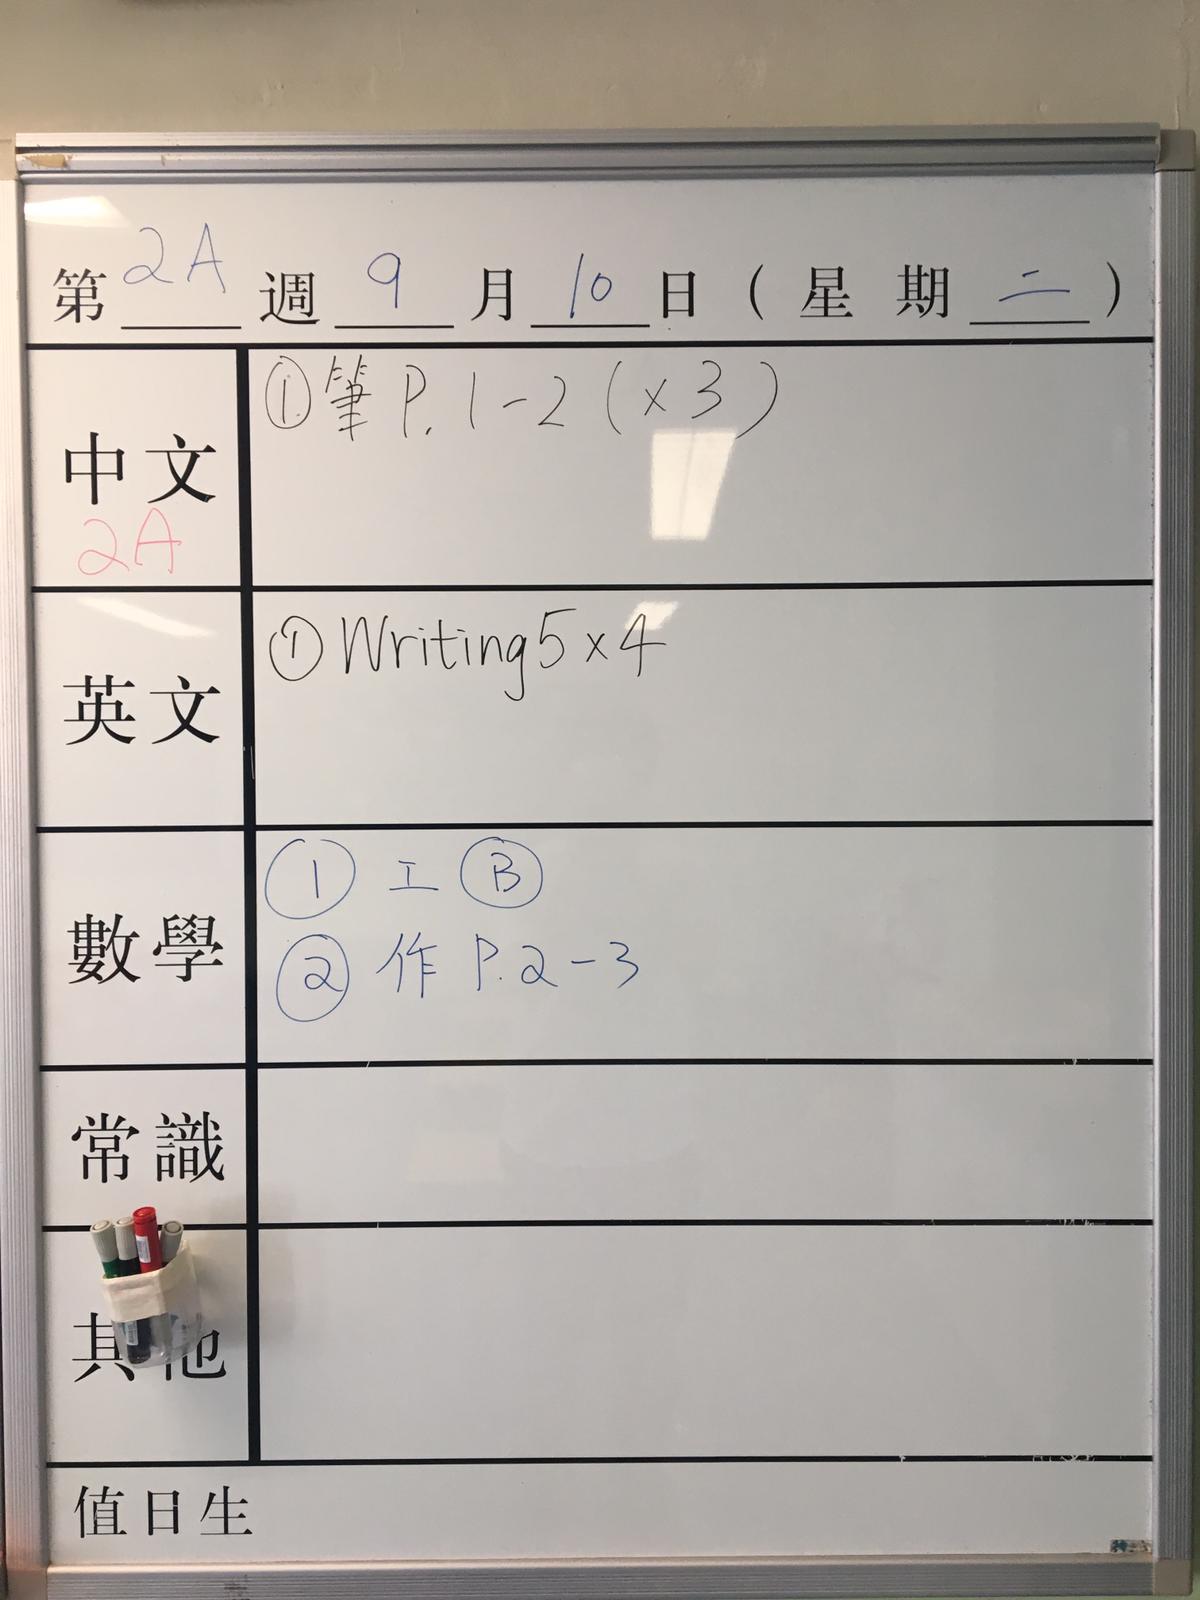 第 2A 週 9 月 10 日 ( 星 期 二 )
中文
2A
① 筆 P. 1-2 (×3)
英文
① Writing 5×4
數學
① 工 Ⓑ
② 作 P.2-3
常識
其他
值日生